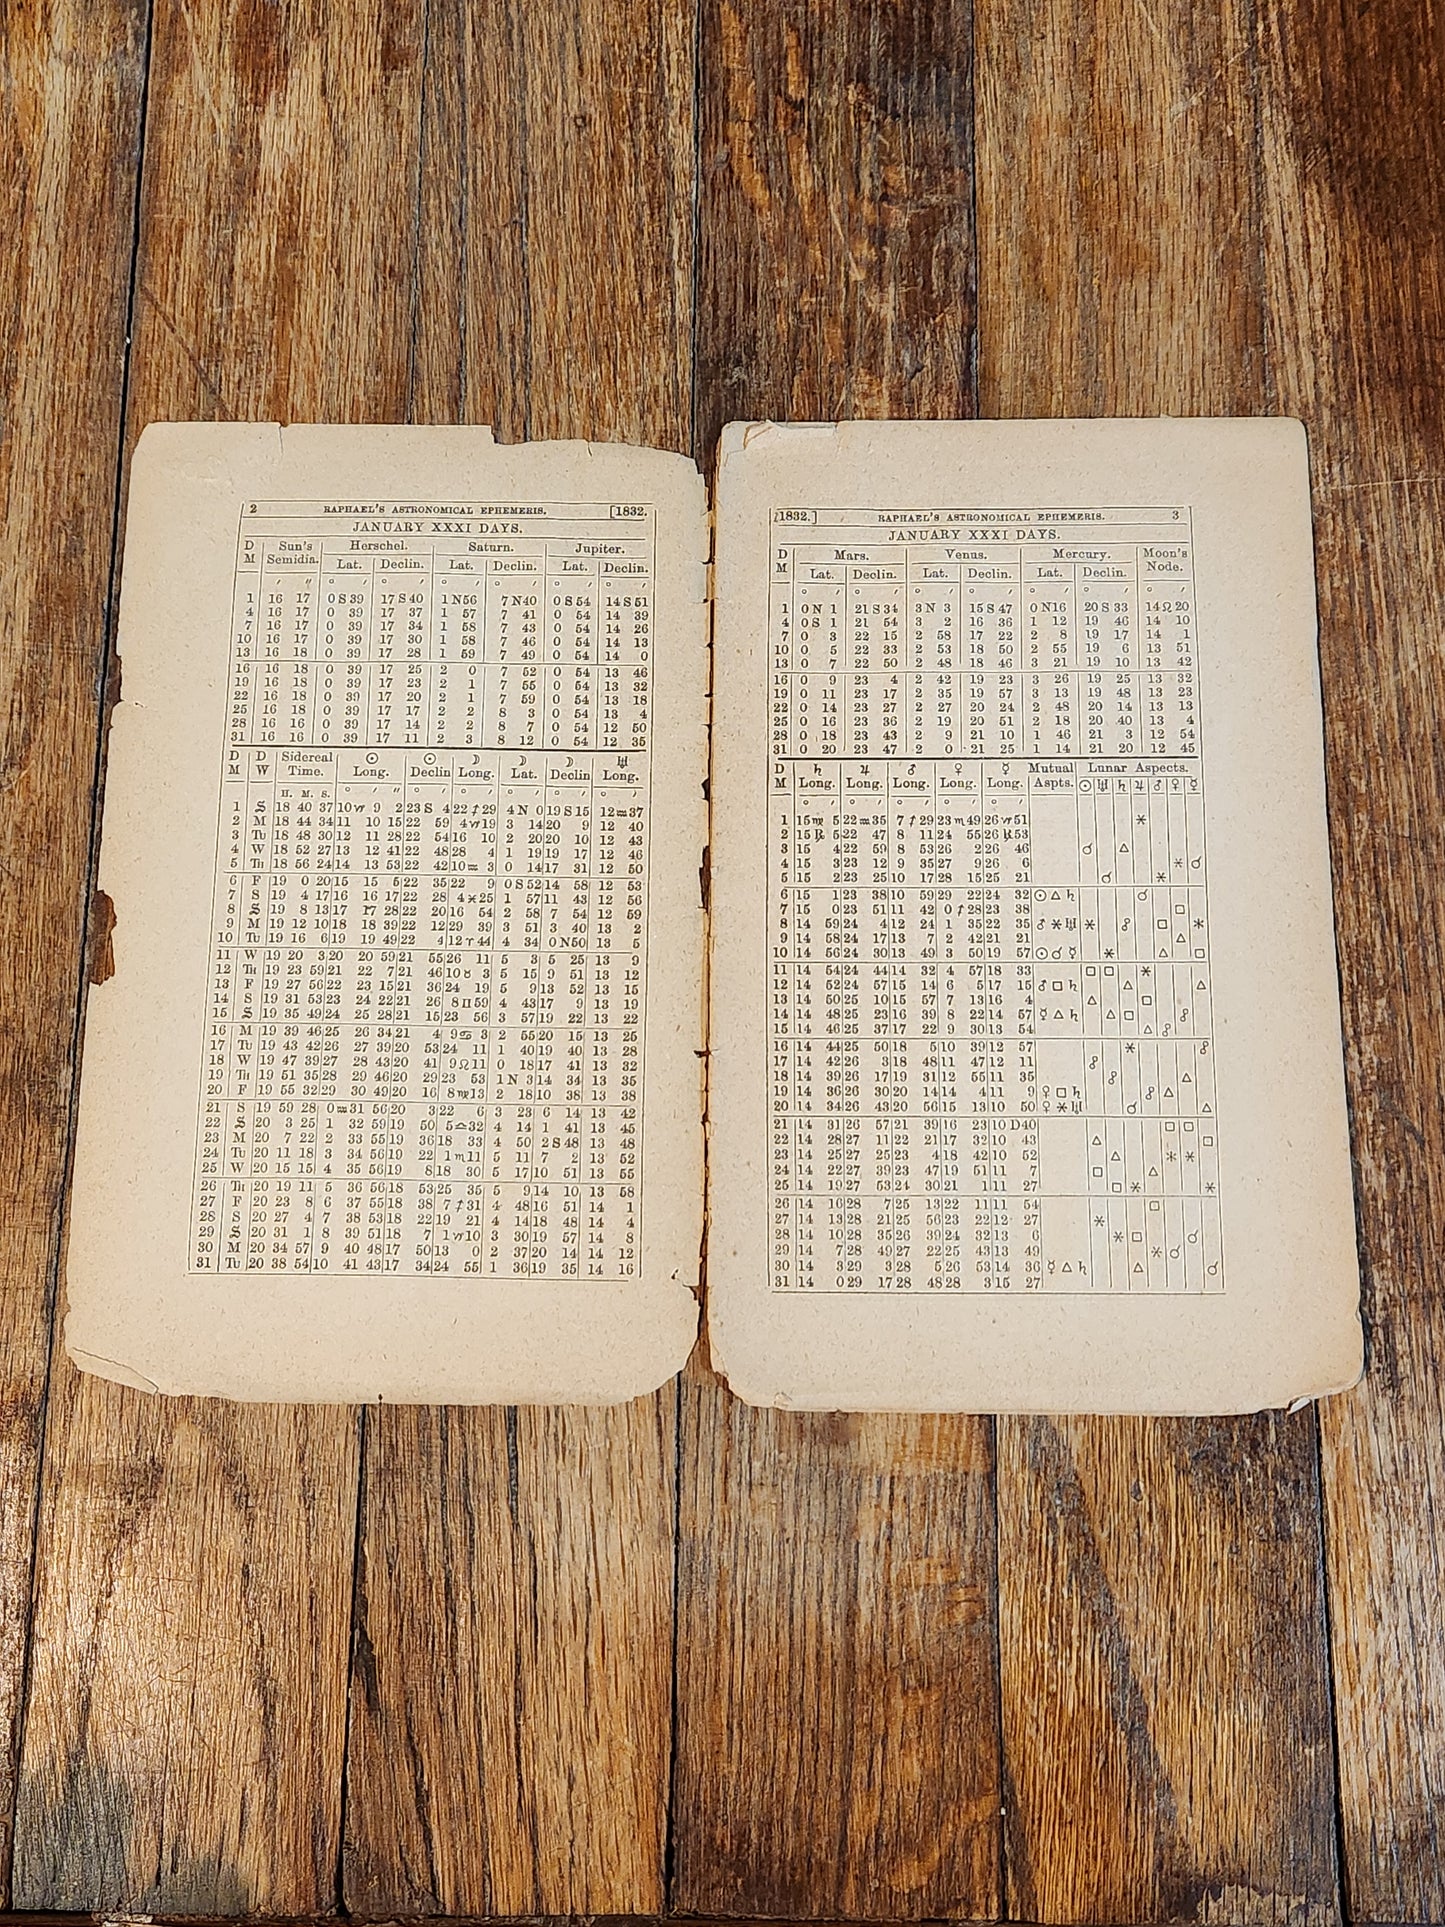 2 RAPHAEL'S ASTRONOMICAL EPHEMERIS. [1832.
JANUARY XXXI DAYS.
D M Sun's Semidia. Herschel. Saturn. Jupiter.
Lat. Declin. Lat. Declin. Lat. Declin.
° ′ ° ′ ° ′ ° ′ ° ′ ° ′
1 16 17 0 S 39 17 S 40 1 N 56 7 N 40 0 S 54 14 S 51
4 16 17 0 39 17 37 1 57 7 41 0 54 14 39
7 16 17 0 39 17 34 1 58 7 43 0 54 14 26
10 16 17 0 39 17 30 1 58 7 46 0 54 14 13
13 16 18 0 39 17 28 1 59 7 49 0 54 14 0
16 16 18 0 39 17 25 2 0 7 52 0 54 13 46
19 16 18 0 39 17 23 2 1 7 55 0 54 13 32
22 16 18 0 39 17 20 2 1 7 59 0 54 13 18
25 16 18 0 39 17 17 2 2 8 3 0 54 13 4
28 16 16 0 39 17 14 2 2 8 7 0 54 12 50
31 16 16 0 39 17 11 2 3 8 12 0 54 12 35
D M D W Sidereal Time. ☉ Long. ☉ Declin ☽ Long. ☽ Lat. ☽ Declin ♅ Long.
H. M. S. ° ′ ″ ° ′ ° ′ ° ′ ° ′ ° ′
1 S 18 40 37 10 ♑ 9 2 23 S 4 22 ♐ 29 4 N 0 19 S 15 12 ♒ 37
2 M 18 44 34 11 10 15 22 59 4 ♑ 19 3 14 20 9 12 40
3 Tu 18 48 30 12 11 28 22 54 16 10 2 20 20 10 12 43
4 W 18 52 27 13 12 41 22 48 28 4 1 19 19 17 12 46
5 Th 18 56 24 14 13 53 22 42 10 ♒ 3 0 14 17 31 12 50
6 F 19 0 20 15 15 5 22 35 22 9 0 S 52 14 58 12 53
7 S 19 4 17 16 16 17 22 28 4 ♓ 25 1 57 11 43 12 56
8 S 19 8 13 17 17 28 22 20 16 54 2 58 7 54 12 59
9 M 19 12 10 18 18 39 22 12 29 39 3 51 3 40 13 2
10 Tu 19 16 6 19 19 49 22 4 12 ♈ 44 4 34 0 N 50 13 5
11 W 19 20 3 20 20 59 21 55 26 11 5 3 5 25 13 9
12 Th 19 23 59 21 22 7 21 46 10 ♉ 3 5 15 9 51 13 12
13 F 19 27 56 22 23 15 21 36 24 19 5 9 13 52 13 15
14 S 19 31 53 23 24 22 21 26 8 ♊ 59 4 43 17 9 13 19
15 S 19 35 49 24 25 28 21 15 23 56 3 57 19 22 13 22
16 M 19 39 46 25 26 34 21 4 9 ♋ 3 2 55 20 15 13 25
17 Tu 19 43 42 26 27 39 20 53 24 11 1 40 19 40 13 28
18 W 19 47 39 27 28 43 20 41 9 ♌ 11 0 18 17 41 13 32
19 Th 19 51 35 28 29 46 20 29 23 53 1 N 3 14 34 13 35
20 F 19 55 32 29 30 49 20 16 8 ♍ 13 2 18 10 38 13 38
21 S 19 59 28 0 ♒ 31 56 20 3 22 6 3 23 6 14 13 42
22 S 20 3 25 1 32 59 19 50 5 ♎ 32 4 14 1 41 13 45
23 M 20 7 22 2 33 55 19 36 18 33 4 50 2 S 48 13 48
24 Tu 20 11 18 3 34 56 19 22 1 ♏ 11 5 11 7 2 13 52
25 W 20 15 15 4 35 56 19 8 18 30 5 17 10 51 13 55
26 Th 20 19 11 5 36 56 18 53 25 35 5 9 14 10 13 58
27 F 20 23 8 6 37 55 18 38 7 ♐ 31 4 48 16 51 14 1
28 S 20 27 4 7 38 53 18 22 19 21 4 14 18 48 14 4
29 S 20 31 1 8 39 51 18 7 1 ♑ 10 3 30 19 57 14 8
30 M 20 34 57 9 40 48 17 50 13 0 2 37 20 14 14 12
31 Tu 20 38 54 10 41 43 17 34 24 55 1 36 19 35 14 16
1832.] RAPHAEL'S ASTRONOMICAL EPHEMERIS. 3
JANUARY XXXI DAYS.
D M Mars. Venus. Mercury. Moon's Node.
Lat. Declin. Lat. Declin. Lat. Declin.
° ′ ° ′ ° ′ ° ′ ° ′ ° ′ ° ′
1 0 N 1 21 S 34 3 N 3 15 S 47 0 N 16 20 S 33 14 ♌ 20
4 0 S 1 21 54 3 2 16 36 1 12 19 46 14 10
7 0 3 22 15 2 58 17 22 2 8 19 17 14 1
10 0 5 22 33 2 53 18 50 2 55 19 6 13 51
13 0 7 22 50 2 48 18 46 3 21 19 10 13 42
16 0 9 23 4 2 42 19 23 3 26 19 25 13 32
19 0 11 23 17 2 35 19 57 3 13 19 48 13 23
22 0 14 23 27 2 27 20 24 2 48 20 14 13 13
25 0 16 23 36 2 19 20 51 2 18 20 40 13 4
28 0 18 23 43 2 9 21 10 1 46 21 3 12 54
31 0 20 23 47 2 0 21 25 1 14 21 20 12 45
D M ♄ Long. ♃ Long. ♂ Long. ♀ Long. ☿ Long. Mutual Aspts. Lunar Aspects.
☉ ♅ ♄ ♃ ♂ ♀ ☿
° ′ ° ′ ° ′ ° ′ ° ′
1 15 ♍ 5 22 ♒ 35 7 ♐ 29 23 ♏ 49 26 ♑ 51 ⚹
2 15 ℞ 5 22 47 8 11 24 55 26 ℞ 53
3 15 4 22 59 8 53 26 2 26 46 ☌ △
4 15 3 23 12 9 35 27 9 26 6 ⚹ ☌
5 15 2 23 25 10 17 28 15 25 21 ☌ ⚹
6 15 1 23 38 10 59 29 22 24 32 ☉ △ ♄ ☌
7 15 0 23 51 11 42 0 ♐ 28 23 38 □
8 14 59 24 4 12 24 1 35 22 35 ♂ ⚹ ♅ ⚹ ☍ □ ⚹
9 14 58 24 17 13 7 2 42 21 21 △
10 14 56 24 30 13 49 3 50 19 57 ☉ ☌ ☿ ⚹ △ □
11 14 54 24 44 14 32 4 57 18 33 □ □ ⚹
12 14 52 24 57 15 14 6 5 17 15 ♂ □ ♄ △ △
13 14 50 25 10 15 57 7 13 16 4 △ □
14 14 48 25 23 16 39 8 22 14 57 ☿ △ ♄ △ □ ☍
15 14 46 25 37 17 22 9 30 13 54 △ ☍
16 14 44 25 50 18 5 10 39 12 57 ⚹ ☍
17 14 42 26 3 18 48 11 47 12 11 ☍
18 14 39 26 17 19 31 12 55 11 35 ☍ △
19 14 36 26 30 20 14 14 4 11 9 ♀ □ ♄ ☍ △
20 14 34 26 43 20 56 15 13 10 50 ♀ ⚹ ♅ ☌ △
21 14 31 26 57 21 39 16 23 10 D 40 □ □
22 14 28 27 11 22 21 17 32 10 43 △ □
23 14 25 27 25 23 4 18 42 10 52 △ ⚹ ⚹
24 14 22 27 39 23 47 19 51 11 7 □ △
25 14 19 27 53 24 30 21 1 11 27 □ ⚹ ⚹
26 14 16 28 7 25 13 22 11 11 54 □
27 14 13 28 21 25 56 23 22 12 27 ⚹
28 14 10 28 35 26 39 24 32 13 6 ⚹ □ ☌
29 14 7 28 49 27 22 25 43 13 49 ⚹ ☌
30 14 3 29 3 28 5 26 53 14 36 ☿ △ ♄ △ ☌
31 14 0 29 17 28 48 28 3 15 27